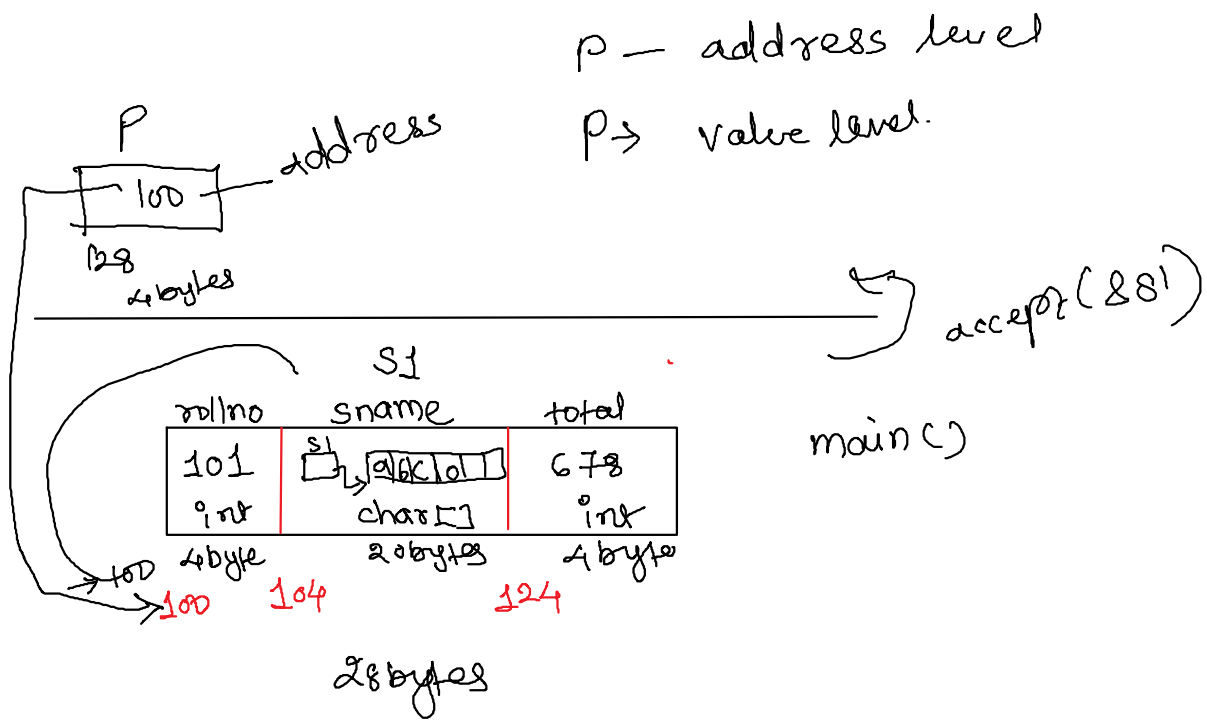 P — address level
P→ value level.
P
100
address
128
4 bytes
accept(&s1)
S1
rollno sname total
101 s1 a b c \0 678
int char[] int
4 byte 20 bytes 4 byte
main()
100
100 104 124
28 bytes